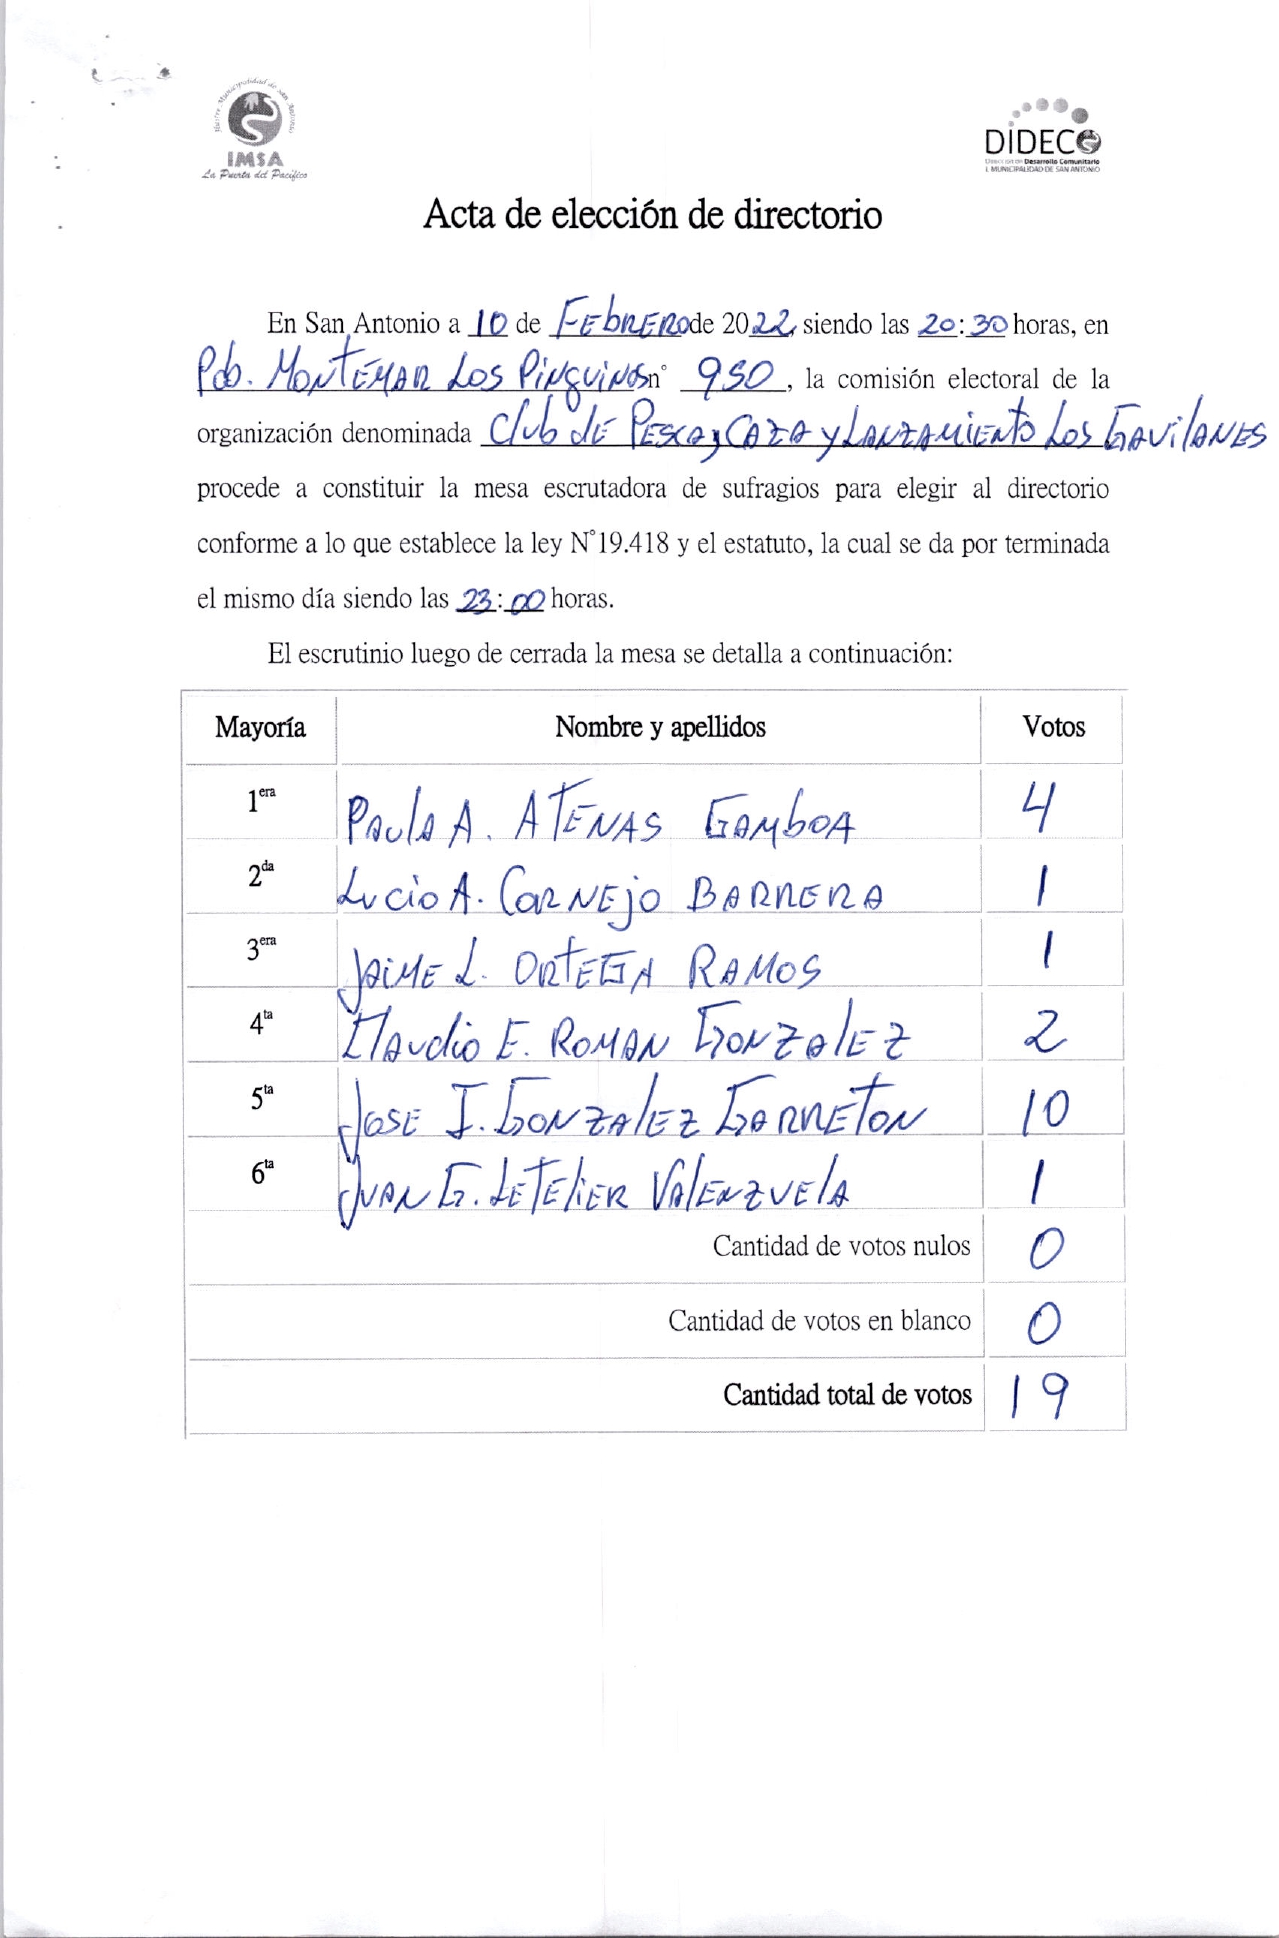 Ilustre Municipalidad de San Antonio
IMSA
La Puerta del Pacífico
DIDECO
Dirección de Desarrollo Comunitario
I. MUNICIPALIDAD DE SAN ANTONIO
Acta de elección de directorio
En San Antonio a 10 de FEbRERO de 2022, siendo las 20:30 horas, en
Pob. MONTEMAR LOS PiNGUiNOS n° 950, la comisión electoral de la
organización denominada Club dE PESCA y CAZA y LANZAMIENTO LOS GAVilANES
procede a constituir la mesa escrutadora de sufragios para elegir al directorio
conforme a lo que establece la ley N°19.418 y el estatuto, la cual se da por terminada
el mismo día siendo las 23:00 horas.
El escrutinio luego de cerrada la mesa se detalla a continuación:
Mayoría Nombre y apellidos Votos
1era PAulA A. ATENAS GAMbOA 4
2da Lucio A. CORNEjO BARRERA 1
3era JAiME L. ORTEGA RAMOS 1
4ta ClAudio E. ROMAN GONZAlEZ 2
5ta JOSE I. GONZAlEZ GARRETON 10
6ta JUAN G. LETEliER VAlENZUElA 1
Cantidad de votos nulos 0
Cantidad de votos en blanco 0
Cantidad total de votos 19